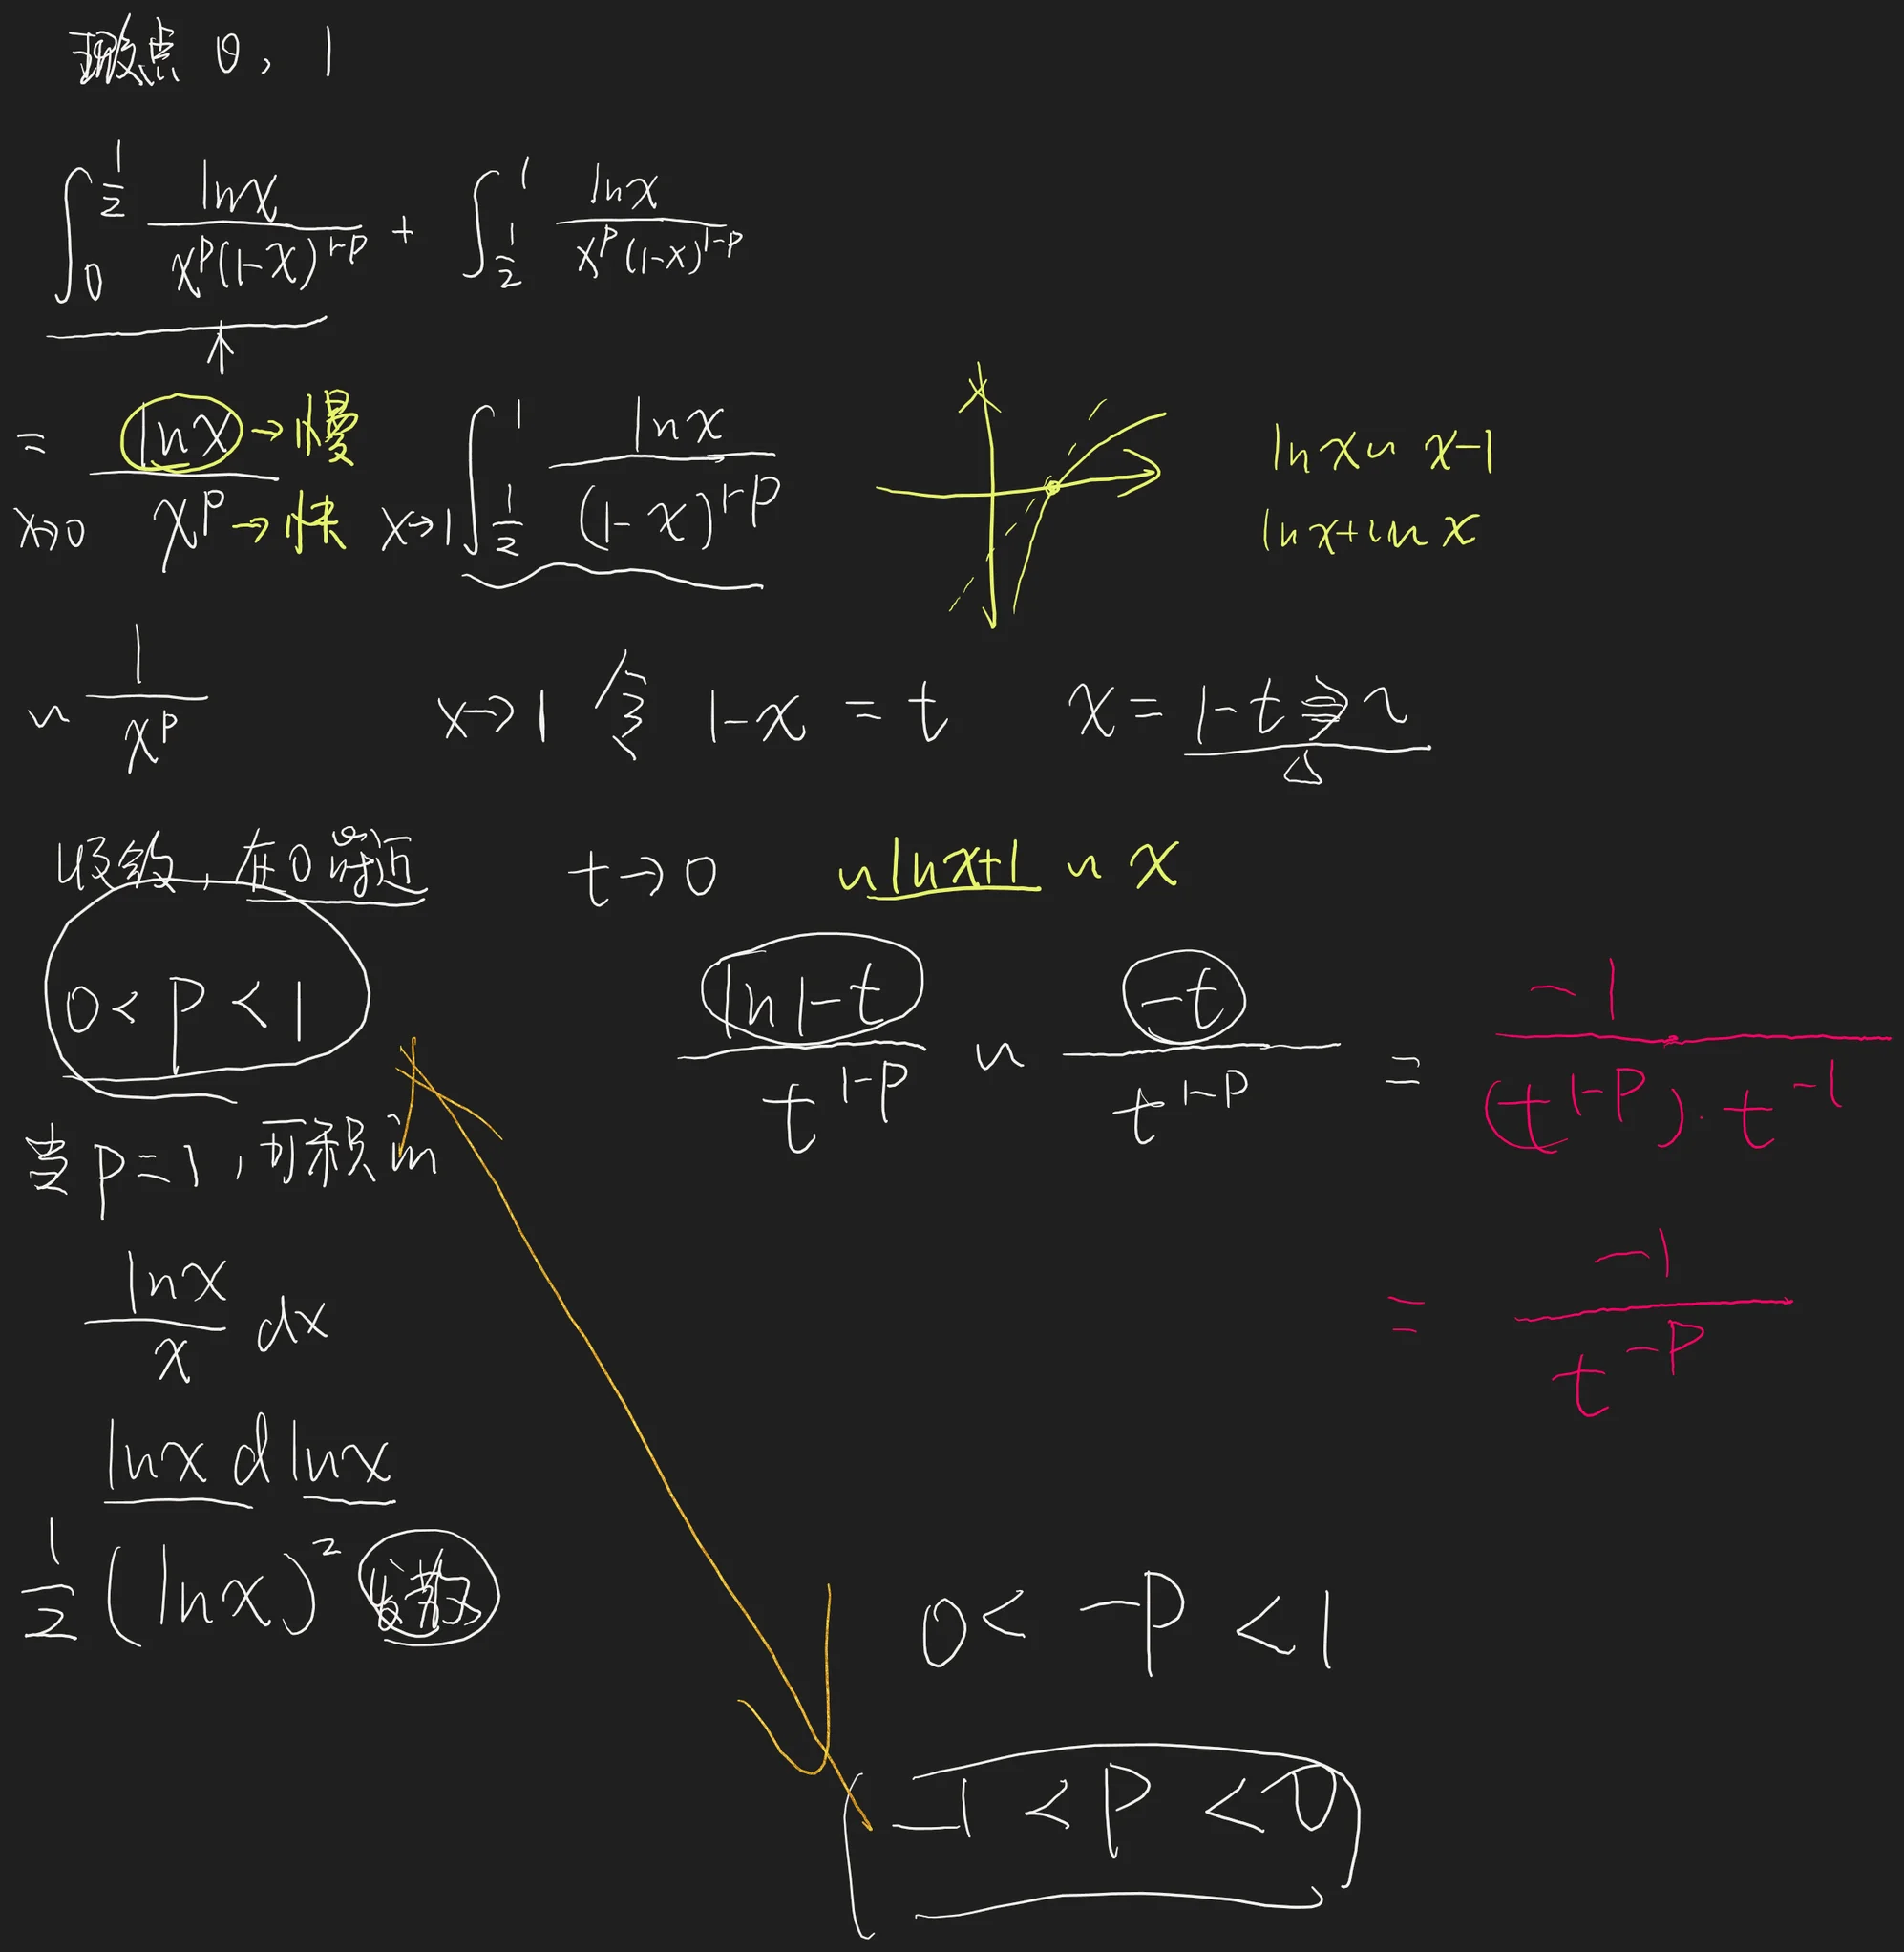 瑕点 0, 1
∫₀^(1/2) lnx / (x^p (1-x)^(1-p)) + ∫_(1/2)^1 lnx / (x^p (1-x)^(1-p))
= x→0 lnx → 慢 / x^p → 快
x→1 ∫_(1/2)^1 lnx / (1-x)^(1-p)
lnx ~ x-1
lnx+1 ~ x
~ 1 / x^p
x→1 令 1-x = t x = 1-t
收敛, 在0附近
t→0 ~ lnx+1 ~ x
0 < p < 1
ln1-t / t^(1-p) ~ -t / t^(1-p) = -1 / (t^(1-p)) · t^(-1)
当 p = 1, 可积
= -1 / t^(-p)
lnx / x dx
lnx d lnx
1/2 (lnx)²
0 < -p < 1
-1 < p < 0